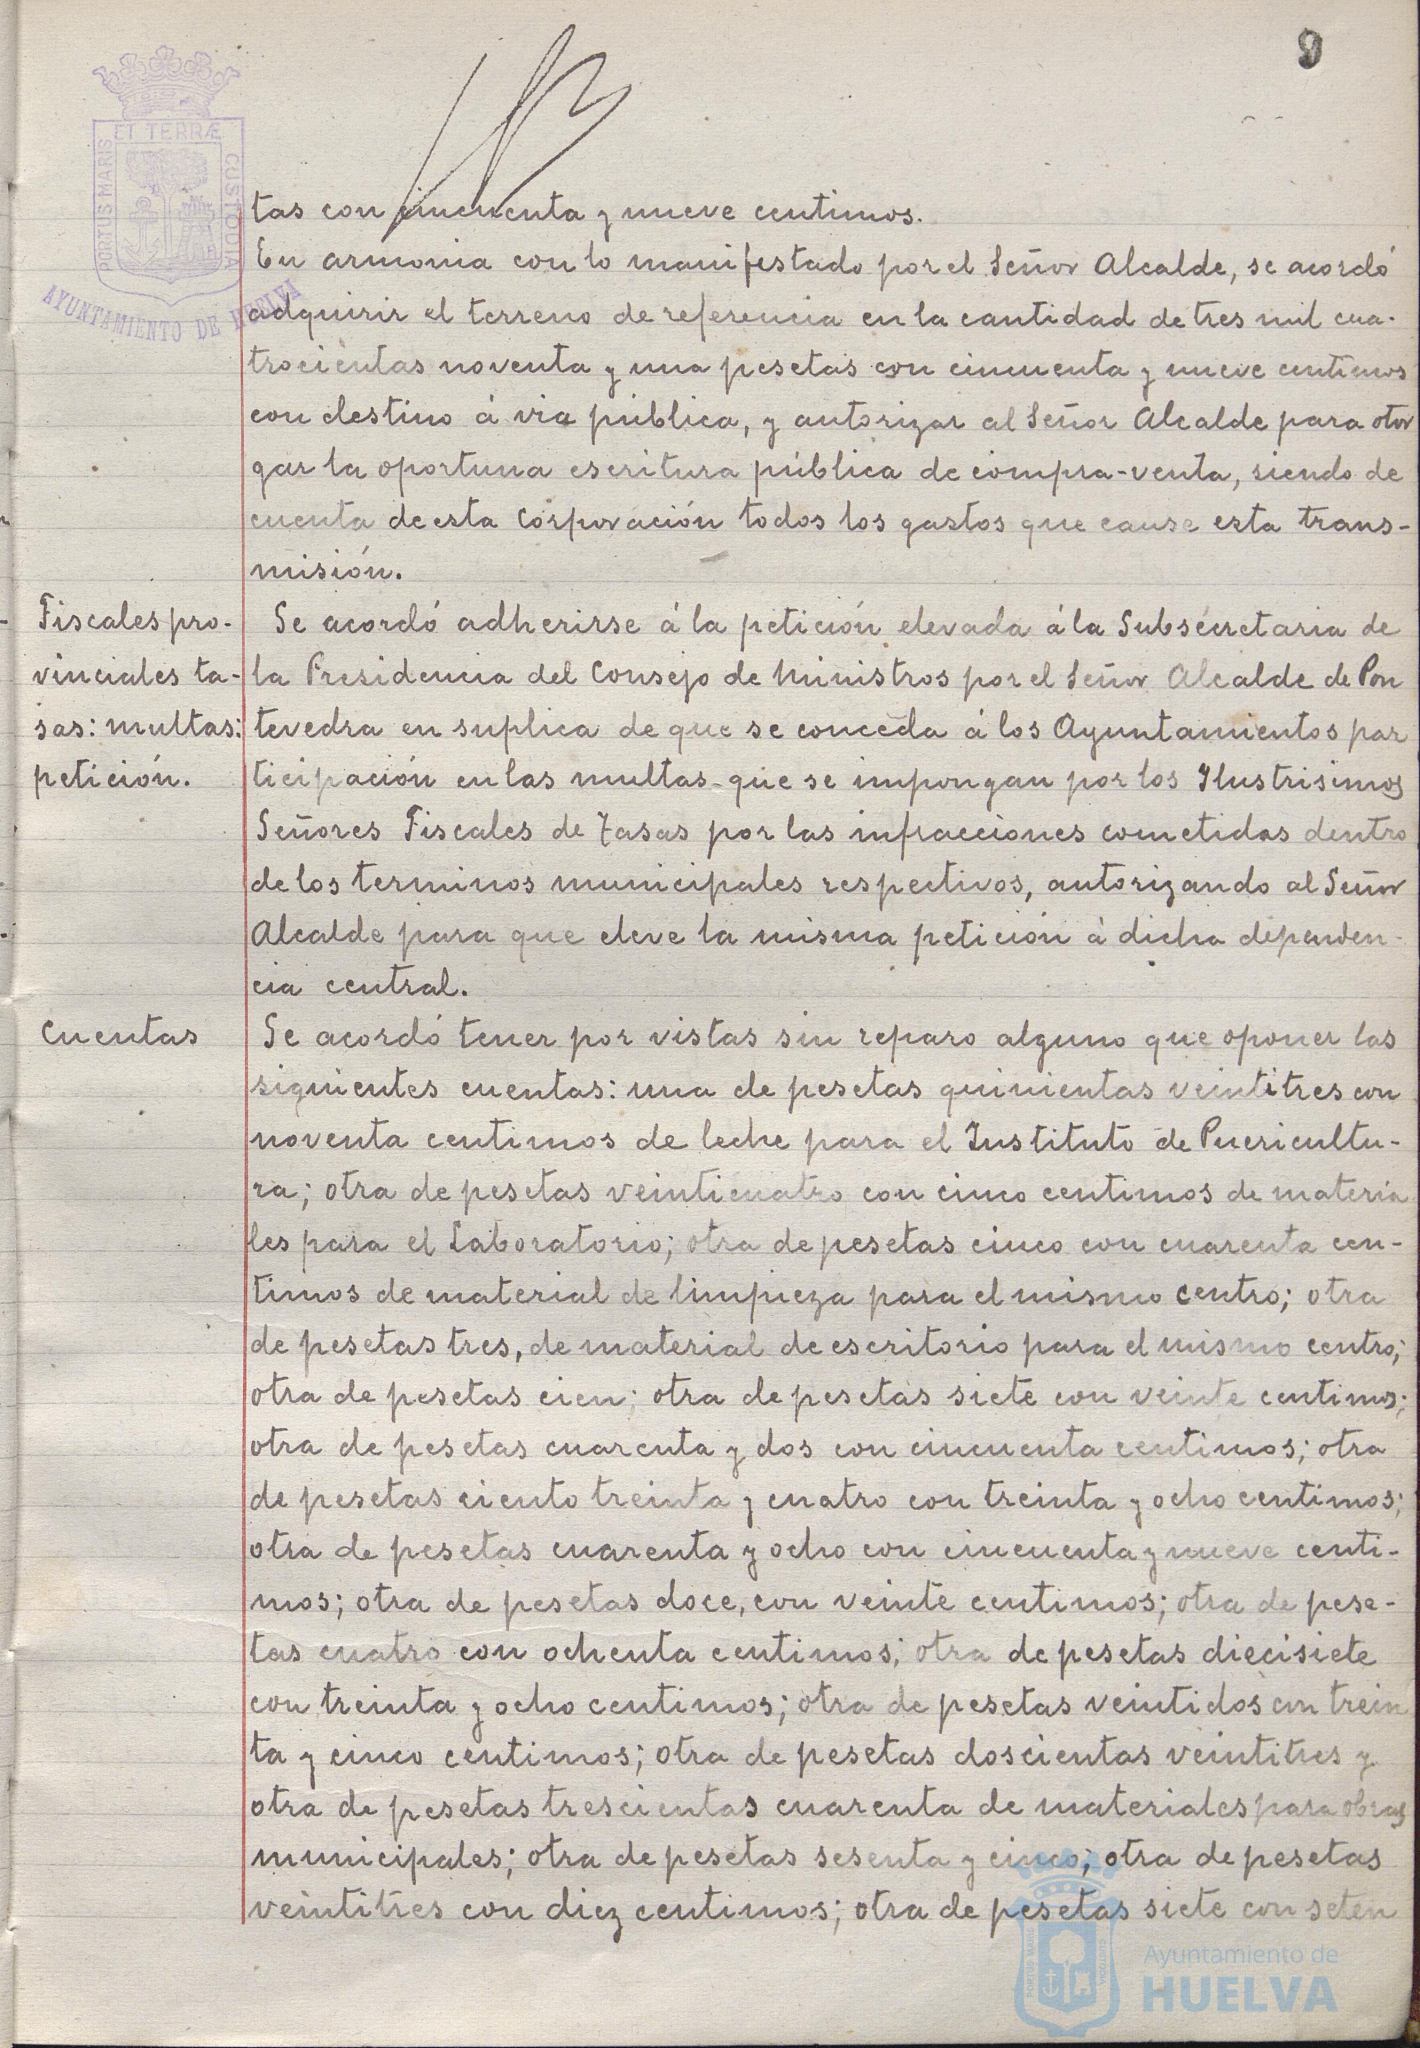 9
ET TERRÆ
PORTUS MARIS
CUSTODIA
AYUNTAMIENTO DE HUELVA
tas con cincuenta y nueve centimos.
En armonia con lo manifestado por el Señor Alcalde, se acordó
adquirir el terreno de referencia en la cantidad de tres mil cua-
trocientas noventa y una pesetas con cincuenta y nueve centimos
con destino á via pública, y autorizar al Señor Alcalde para otor
gar la oportuna escritura pública de compra-venta, siendo de
cuenta de esta Corporación todos los gastos que cause esta trans-
misión.
Fiscales pro-
vinciales ta-
sas: multas:
petición.
Se acordó adherirse á la petición elevada á la Subsecretaria de
la Presidencia del Consejo de Ministros por el Señor Alcalde de Pon
tevedra en suplica de que se conceda á los Ayuntamientos par
ticipación en las multas que se impongan por los Ilustrisimos
Señores Fiscales de Tasas por las infracciones cometidas dentro
de los terminos municipales respectivos, autorizando al Señor
Alcalde para que eleve la misma petición á dicha dependen-
cia central.
Cuentas
Se acordó tener por vistas sin reparo alguno que oponer las
siguientes cuentas: una de pesetas quinientas veintitres con
noventa centimos de leche para el Instituto de Puericultu-
ra; otra de pesetas veinticuatro con cinco centimos de materia
les para el Laboratorio; otra de pesetas cinco con cuarenta cen-
timos de material de limpieza para el mismo centro; otra
de pesetas tres, de material de escritorio para el mismo centro;
otra de pesetas cien; otra de pesetas siete con veinte centimos;
otra de pesetas cuarenta y dos con cincuenta centimos; otra
de pesetas ciento treinta y cuatro con treinta y ocho centimos;
otra de pesetas cuarenta y ocho con cincuenta y nueve centi-
mos; otra de pesetas doce, con veinte centimos; otra de pese-
tas cuatro con ochenta centimos; otra de pesetas diecisiete
con treinta y ocho centimos; otra de pesetas veintidos con trein
ta y cinco centimos; otra de pesetas doscientas veintitres y
otra de pesetas trescientas cuarenta de materiales para obras
municipales; otra de pesetas sesenta y cinco; otra de pesetas
veintitres con diez centimos; otra de pesetas siete con seten
Ayuntamiento de
HUELVA